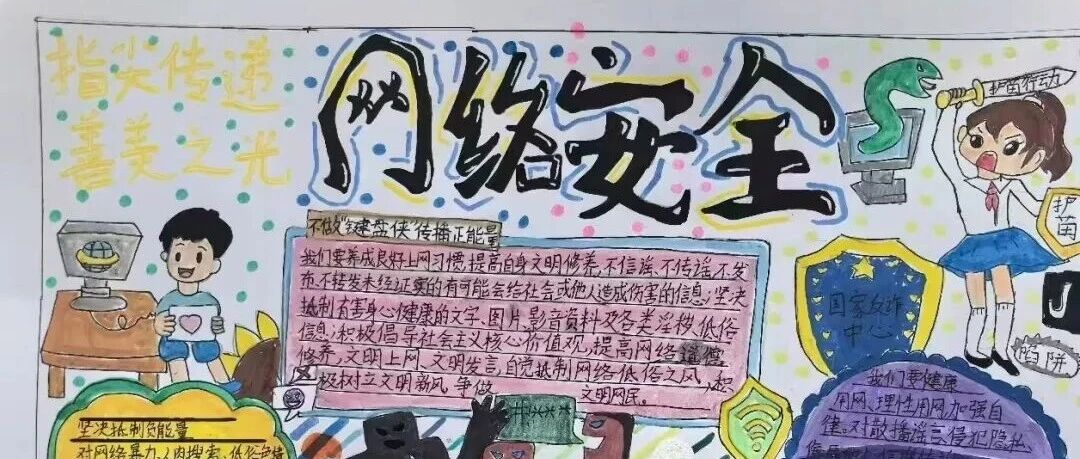 指尖传递
善美之光
网络安全
护苗行动
护苗
不做“键盘侠”传播正能量
我们要养成良好上网习惯,提高自身文明修养,不信谣、不传谣、不发
布、不转发未经证实的有可能会给社会或他人造成伤害的信息;坚决
抵制有害身心健康的文字、图片、影音资料及各类淫秽、低俗
信息;积极倡导社会主义核心价值观,提高网络道德
修养,文明上网、文明发言,自觉抵制网络低俗之风,
积极树立文明新风,争做 文明网民。
国家反诈
中心
陷阱
坚决抵制负能量
对网络暴力、人肉搜索、低俗色情
我们要健康
用网、理性用网,加强自
律。对散播谣言、侵犯隐私、